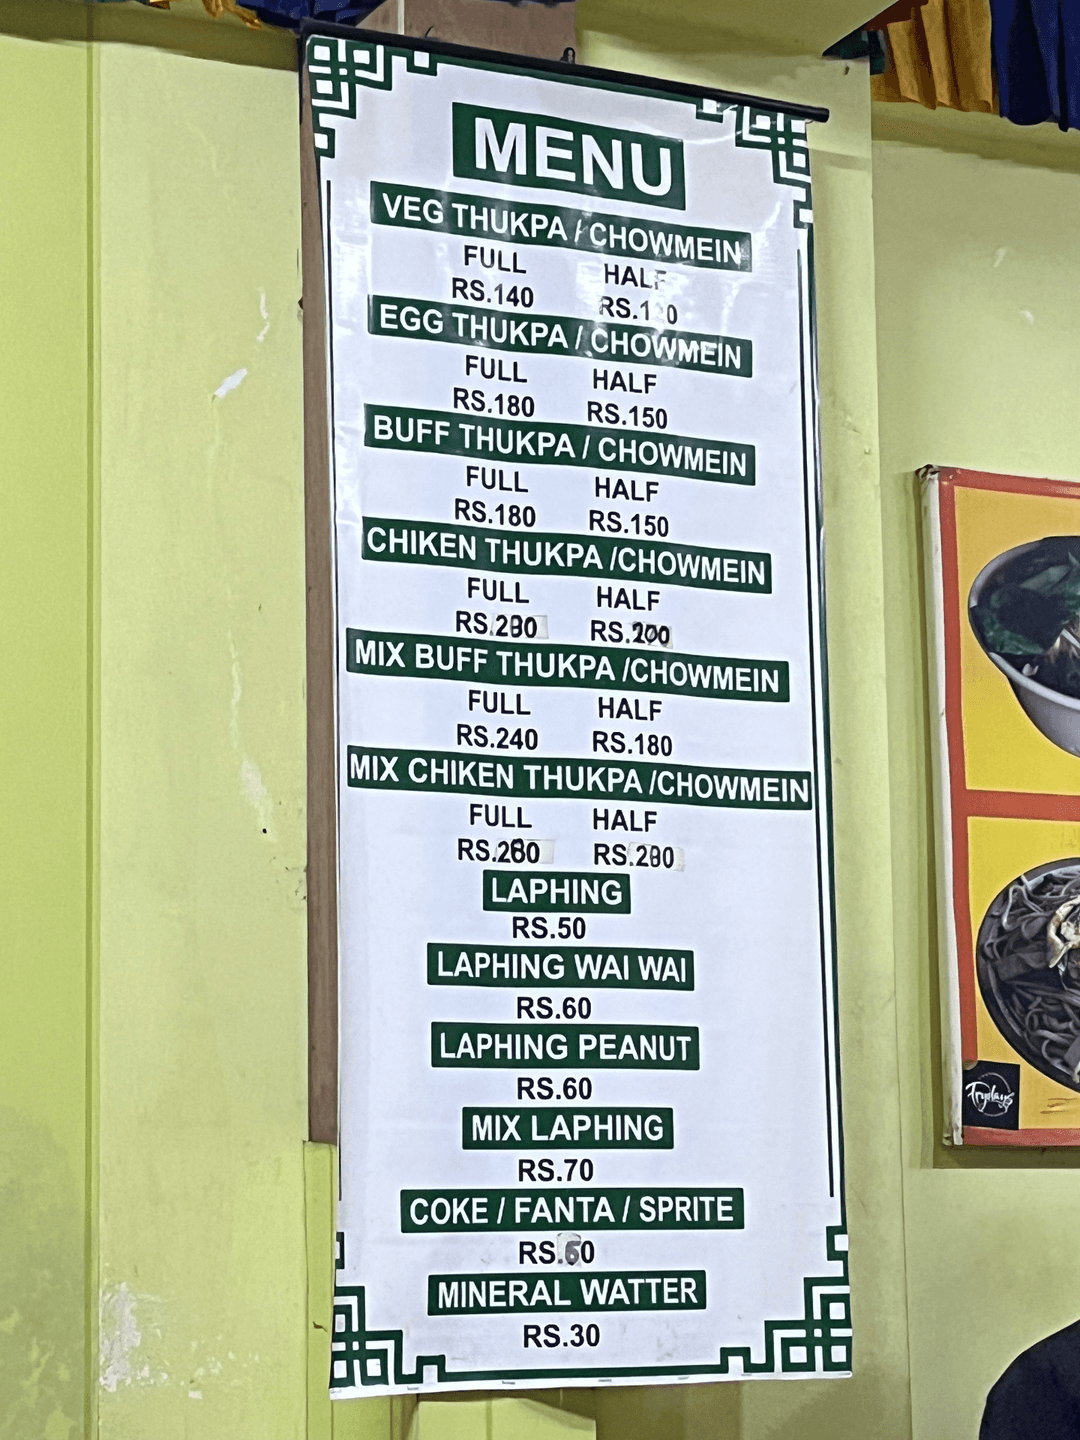 MENU
VEG THUKPA / CHOWMEIN
FULL HALF
RS.140
EGG THUKPA / CHOWMEIN
FULL HALF
RS.180 RS.150
BUFF THUKPA / CHOWMEIN
FULL HALF
RS.180 RS.150
CHIKEN THUKPA /CHOWMEIN
FULL HALF
RS.200
MIX BUFF THUKPA /CHOWMEIN
FULL HALF
RS.240 RS.180
MIX CHIKEN THUKPA /CHOWMEIN
FULL HALF
LAPHING
RS.50
LAPHING WAI WAI
RS.60
LAPHING PEANUT
RS.60
MIX LAPHING
RS.70
COKE / FANTA / SPRITE
RS.60
MINERAL WATTER
RS.30